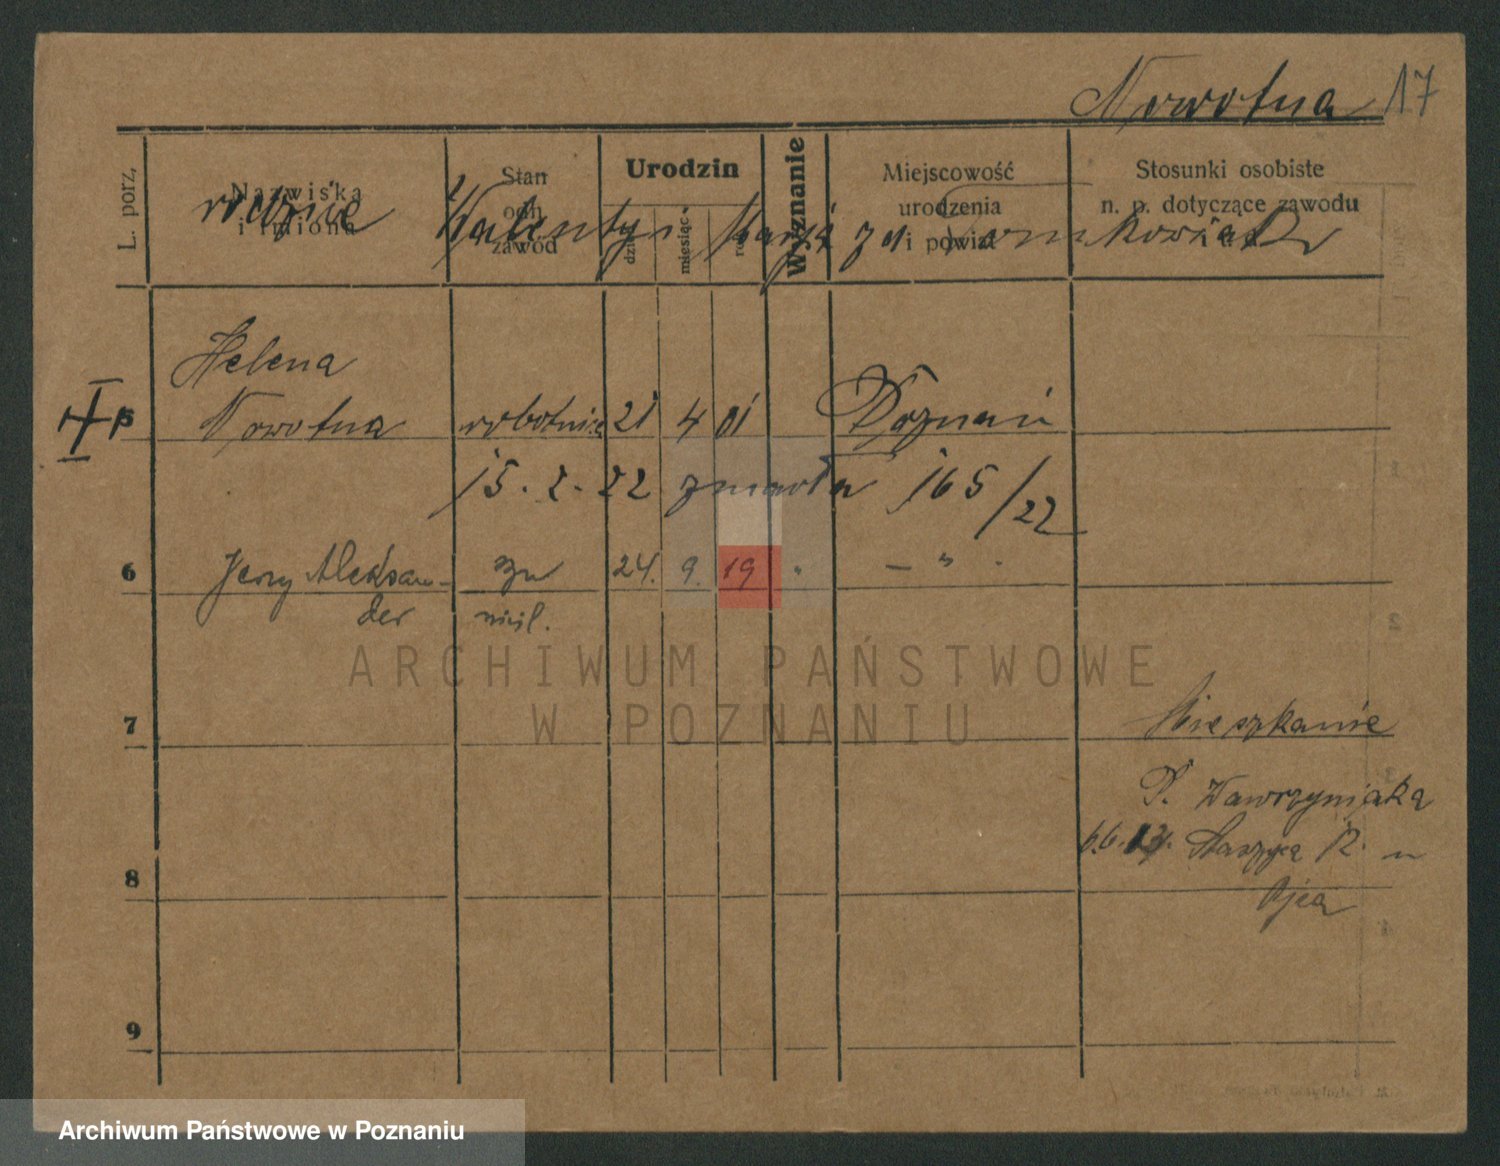 Nowotna 17
L. porz.
Nazwiska
i imiona
Stan
ocih
zawód
Urodzin
dzień
miesiąc
rok
Wyznanie
Miejscowość
urodzenia
i powiat
Stosunki osobiste
n. p. dotyczące zawodu
rodzice Walenty i Marja zd. Tomkowiak
Helena
5 Nowotna robotnica 21 4 01 Poznań
15. 2. 22 zmarła 165/22
6 Jerzy Aleksan- 24. 9. 19 " — " .
der
7 Mieszkanie
P. Wawrzyniaka
Staszyca 12 u
8 Ojca
9
ARCHIWUM PAŃSTWOWE
W POZNANIU
Archiwum Państwowe w Poznaniu